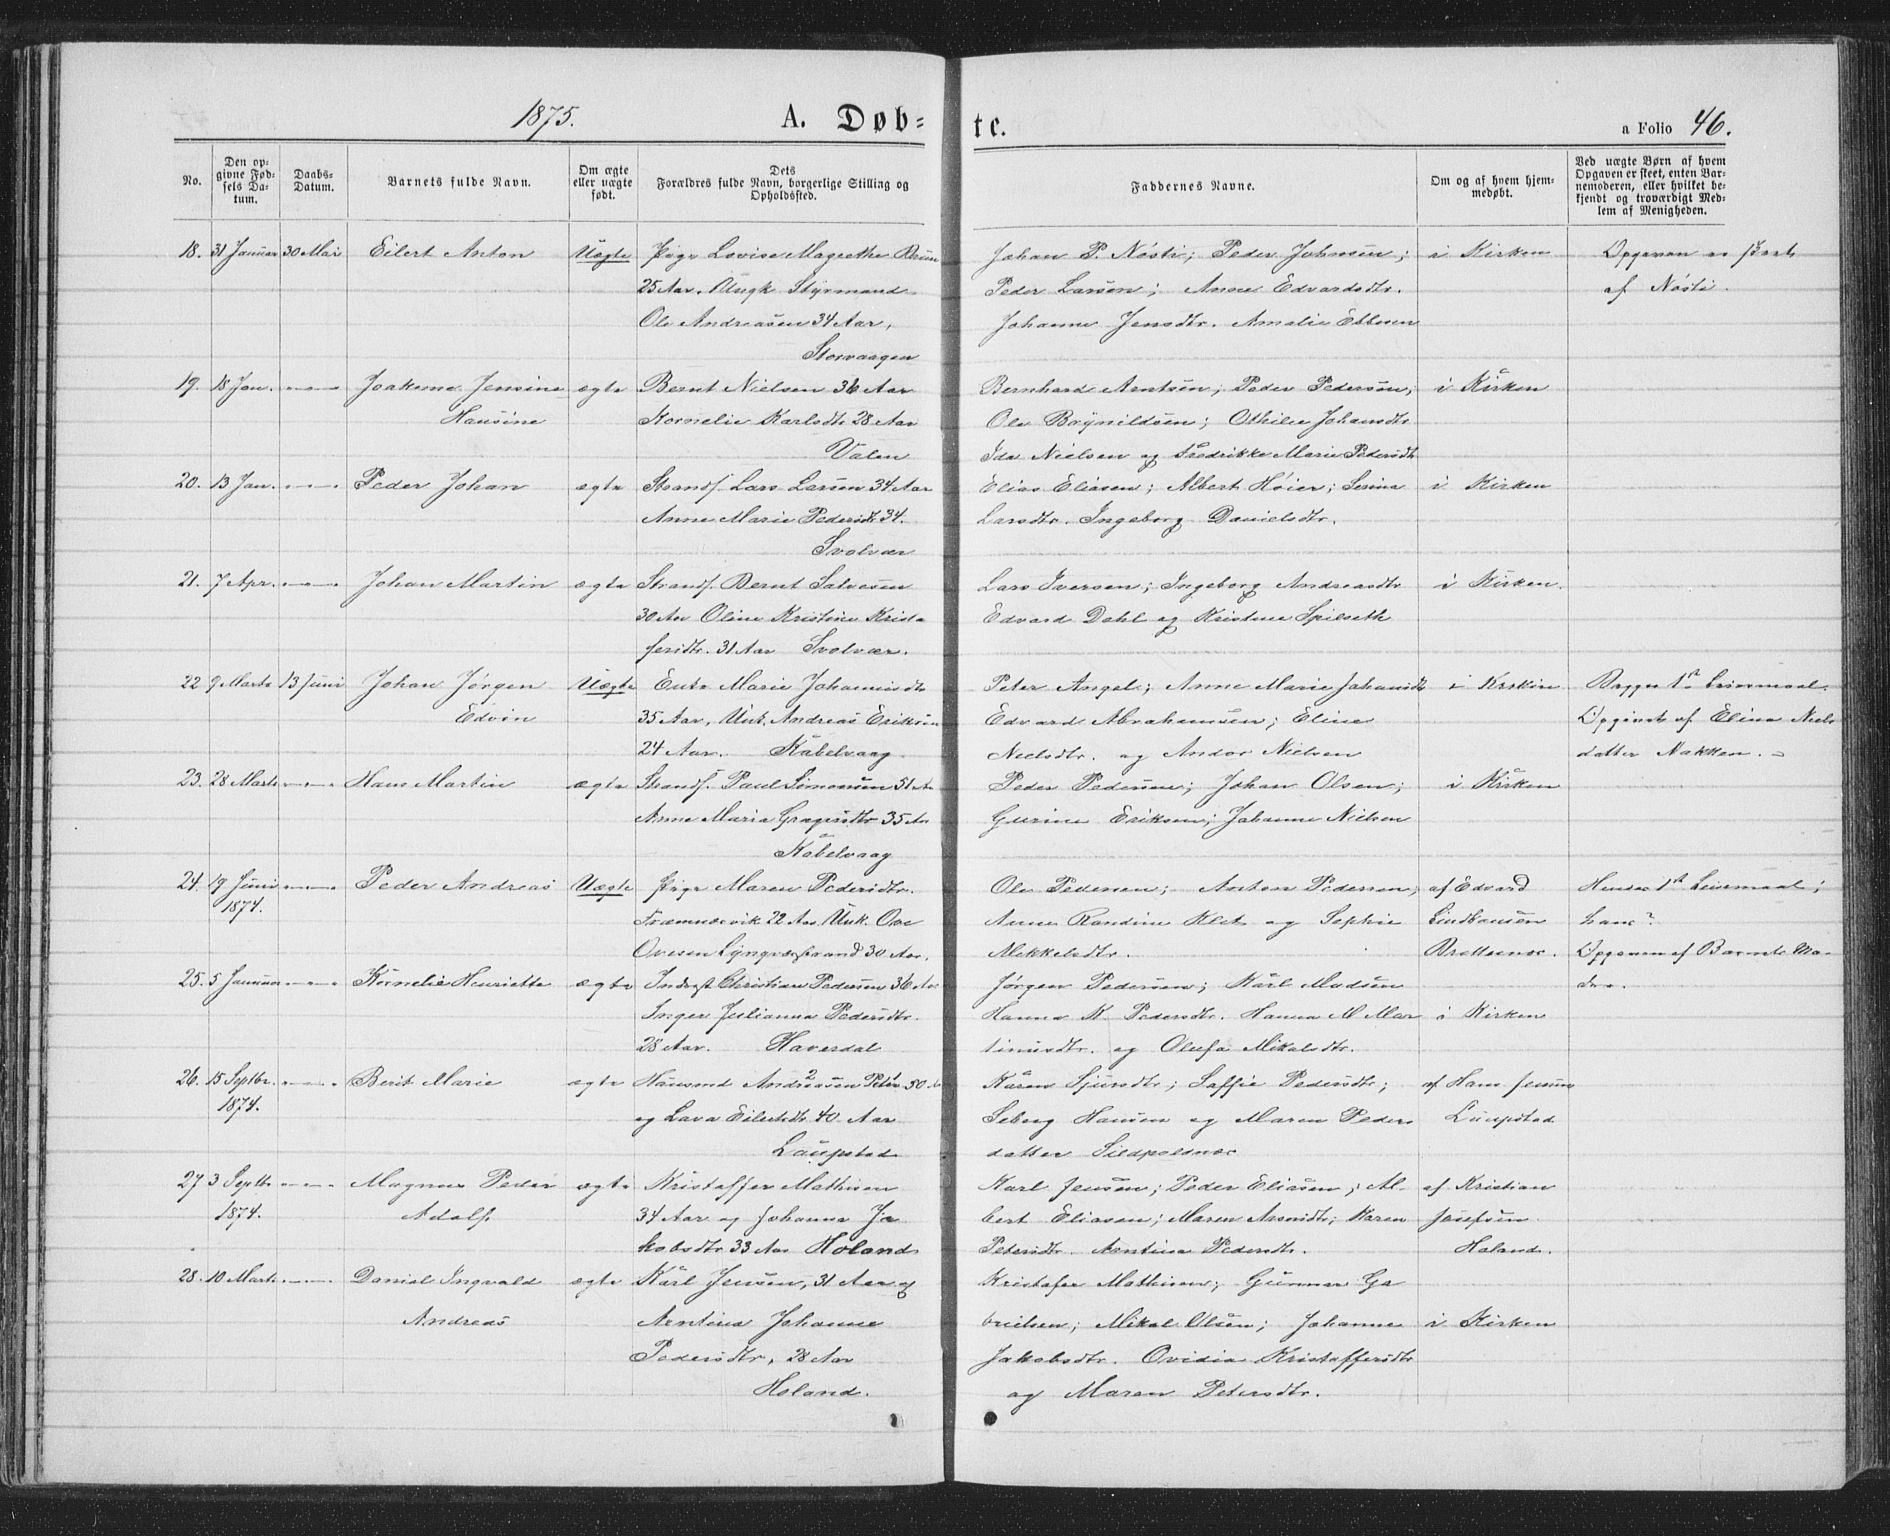 1875. A. Døb= te. a Folio 46.
No. Den op= givne Fød= sels Da= tum. Daabs= Datum. Barnets fulde Navn. Om ægte eller uægte født. Dets Forældres fulde Navn, borgerlige Stilling og Opholdssted. Faddernes Navne. Om og af hvem hjem= medøbt. Ved uægte Børn af hvem Opgaven er skeet, enten Bar= nemoderen, eller hvilket be= kjendt og troværdigt Med= lem af Menigheden.
18. 31 Januar 30 Mai Eilert Anton Uægte Pige Lovise Magrethe Johan P. Nøsti; Peder Johnsen; i Kirken Opgaven er skeet
25 Aar. Ungk. Styrmand Peder Larsen; Anne Edvardsdtr. af Nøsti.
Ole Andreasen 34 Aar, Johanne Jensdtr. Amalie Ebbesen
Storvaagen
19. 18 Jan. -"- Joakime Jensine ægte Bernt Nielsen 36 Aar Bernhard Arntsen; Peder Pedersen; i Kirken
Hansine Kornelie Karlsdtr 28 Aar Ole Brynildsen; Othilie Johansdtr
Valen Ida Nielsen og Fredrikke Marie Pedersdtr
20. 13 Jan. -"- Peder Johan ægte Strands. Lars Larsen 34 Aar Elias Eliasen; Albert Høier; Serina i Kirken
Anne Marie Pedersdtr 34. Larsdtr. Ingeborg Danielsdtr.
Svolvær
21. 7 Apr. -"- Johan Martin ægte Strands. Bernt Salvesen Lars Iversen; Ingeborg Andreasdtr i Kirken.
30 Aar Oline Kristine Krist= Edvard Dahl og Kristine Spilseth
fersdtr. 31 Aar Svolvær.
22 9 Marts 13 Juni Johan Jørgen Uægte Enke Marie Johannesdtr Peter Angel; Anne Marie Johansdtr i Kirken Begges 1st Leiermaal.
Edvin 35 Aar, Unk. Andreas Eriksen Edvard Abrahamsen; Eline Opgivet af Elina Niels
24 Aar. Kabelvaag Nielsdtr. og Andor Nielsen datter Nakken.
23. 28 Marts -"- Hans Martin ægte Strands. Paul Simonsen 51 Aar Peder Pedersen; Johan Olsen; i Kirken
Anne Maria Gregersdtr 35 Aar Gurine Eriksen; Johanne Nielsen
Kabelvaag
24. 19 Juni -"- Peder Andreas Uægte Pige Maren Pedersdtr. Ole Pedersen; Anton Pedersen; af Edvard Hendes 1st Leiermaal;
1874. 22 Aar Unk. Ove Anne Randine Klet og Sophie Lindhansen hans?
Ovesen Lyngværstrand 30 Aar. Mikkelsdtr. Brettesnæs. Opgaven af Barnets Mo=
25. 5 Januar -"- Kornelie Henriette ægte Inderst Christian Pedersen 36 Aar Jørgen Pedersen; Karl Madsen der.
Inger Julianna Pedersdtr. Hanna K. Pedersdtr. Hanna M Mar i Kirken
28 Aar. Haversdal tinusdtr. og Olufa Mikalsdtr.
26. 15 Septbr. -"- Berit Marie ægte Husmd Andreasen 2 Peter 1 50 Aar Karen Sjursdtr; Saffie Pedersdtr; af Hans Jensen
1874. og Lava Eilertsdtr 40 Aar Seberg Hansen og Maren Peders Laupstad
Laupstad datter Sildpoldnæs
27 3 Septbr. -"- Magnus Peder ægte Kristaffer Mathisen Karl Jensen; Peder Eliasen; Al= af Kristian
1874. Adolf 34 Aar og Johanna Ja bert Eliasen; Maren Arnsdtr; Karen Josefsen
kobsdtr 33 Aar Holand Petersdtr. Arntina Pedersdtr. Holand.
28. 10 Marts -"- Daniel Ingvald ægte Karl Jensen, 31 Aar og Kristafer Mathisen; Gunnar Ga
Andreas Arntina Johanne brielsen; Mikal Olsen; Johanne i Kirken
Pedersdtr, 28 Aar Jakobsdtr. Ovidia Kristaffersdtr
Holand. og Maren Petersdtr.